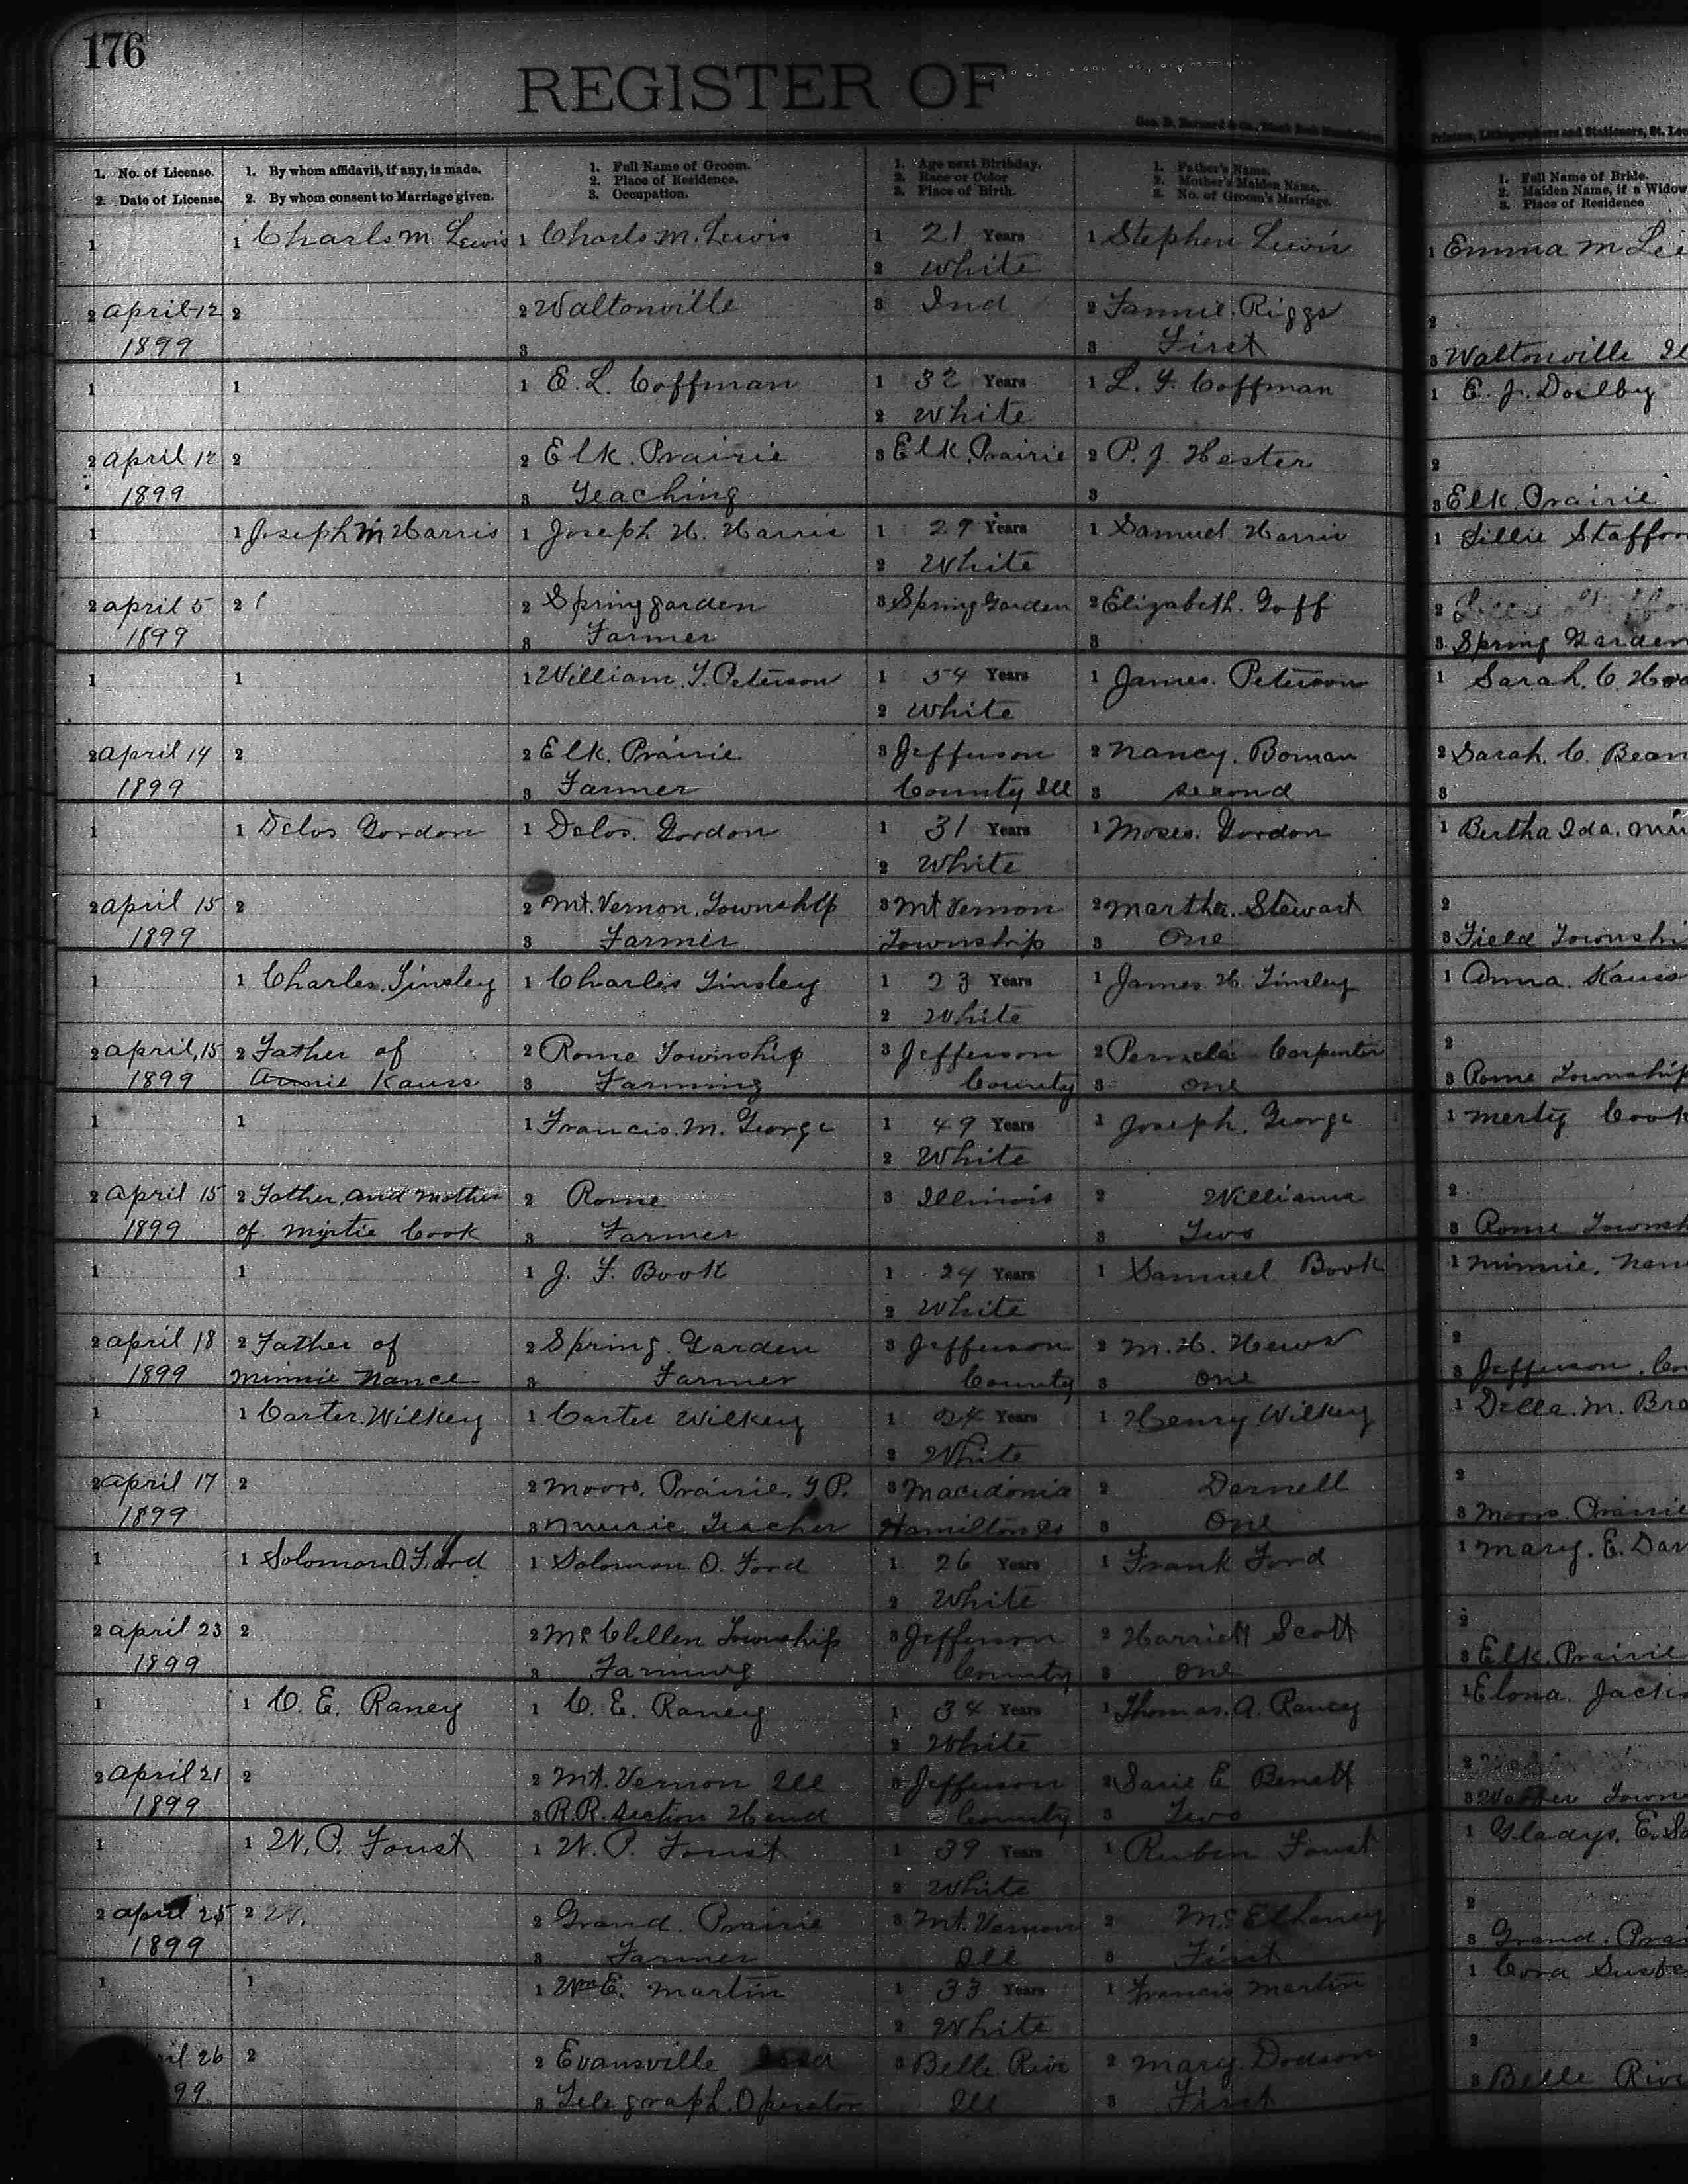 176
REGISTER OF
Geo. D. Barnard & Co., Blank Book Manufacturers
Printers, Lithographers and Stationers, St. Lou
1. No. of License.
2. Date of License.
1. By whom affidavit, if any, is made.
2. By whom consent to Marriage given.
1. Full Name of Groom.
2. Place of Residence.
3. Occupation.
1. Age next Birthday.
2. Race or Color
3. Place of Birth.
1. Father's Name.
2. Mother's Maiden Name.
3. No. of Groom's Marriage.
1. Full Name of Bride.
2. Maiden Name, if a Widow
3. Place of Residence
1 1 Charls M Lewis 1 Charls. M. Lewis 1 21 Years 1 Stephen Lewis 1 Emma M Lee
2 White
2 April 12 2 2 Waltonville 3 Ind 2 Fannie. Riggs 2
1899 3 3 First 3 Waltonville Il
1 1 1 E. L. Coffman 1 32 Years 1 L. Y. Coffman 1 E. J. Doelby
2 White
2 April 12 2 2 Elk. Prairie 3 Elk Prairie 2 P. J. Hester 2
1899 3 Teaching 3 3 Elk Prairie
1 1 Joseph M Harris 1 Joseph H. Harris 1 29 Years 1 Samuel Harris 1 Lillie Staffor
2 White
2 April 5 2 2 Spring garden 3 Spring Garden 2 Elizabeth. Goff 2
1899 3 Farmer 3 3 Spring Garden
1 1 1 William. T. Peterson 1 54 Years 1 James. Peterson 1 Sarah. C. Hoo
2 White
2 April 14 2 2 Elk. Prairie 3 Jefferson 2 Nancy. Boman 2 Sarah. C. Bean
1899 3 Farmer County Ill 3 second 3
1 1 Delos Gordon 1 Delos. Gordon 1 31 Years 1 Moses. Gordon 1 Bertha Ida. Mil
2 White
2 April 15 2 2 Mt. Vernon. Township 3 Mt Vernon 2 Martha. Stewart 2
1899 3 Farmer Township 3 One 3 Field Townshi
1 1 Charles. Tinsley 1 Charles Tinsley 1 23 Years 1 James. H. Tinsley 1 Anna. Kauss
2 White
2 April, 15 2 Father of 2 Rome Township 3 Jefferson 2 Permela Carpenter 2
1899 Annie Kauss 3 Farming County 3 one 3 Rome Township
1 1 1 Francis. M. George 1 49 Years 1 Joseph. George 1 Merty Cook
2 White
2 April 15 2 Father. and Mother 2 Rome 3 Illinois 2 Williams 2
1899 of Myrtie Cook 3 Farmer 3 Two 3 Rome Townsh
1 1 1 J. F. Book 1 24 Years 1 Samuel Book 1 Minnie. Nan
2 White
2 April 18 2 Father of 2 Spring. Garden 3 Jefferson 2 M. H. Hews 2
1899 Minnie Nance 3 Farmer County 3 One 3 Jefferson. Co
1 1 Carter. Wilkey 1 Carter Wilkey 1 24 Years 1 Henry Wilkey 1 Della. M. Bra
2 White
2 April 17 2 2 Moors. Prairie. T.P. 3 Macidonia 2 Darnell 2
1899 3 Music Teacher Hamilton Co 3 One 3 Moors Prairie
1 1 Solomon O. Ford 1 Solomon O. Ford 1 26 Years 1 Frank Ford 1 Mary. E. Dar
2 White
2 April 23 2 2 McClellen Township 3 Jefferson 2 Harriett Scott 2
1899 3 Farming County 3 One 3 Elk. Prairie
1 1 C. E. Raney 1 C. E. Raney 1 34 Years 1 Thomas. A. Raney 1 Elona. Jack
2 White
2 April 21 2 2 Mt. Vernon Ill 3 Jefferson 2 Sarie E Benett 2
1899 3 R.R. Section Hand County 3 Two 3 Towns
1 1 W. P. Foust 1 W. P. Foust 1 39 Years 1 Ruben Foust 1 Gladys. E. Sa
2 White
2 April 25 2 W. 2 Grand. Prairie 3 Mt. Vernon 2 McElhaney 2
1899 3 Farmer Ill 3 First 3 Grand. Prai
1 1 1 Wm E. Martin 1 33 Years 1 Francis Martin 1 Cora
2 White
ril 26 2 2 Evansville 3 Belle Rive 2 Mary. Dodson 2
99 3 Telegraph. Operator Ill 3 First 3 Belle Rive